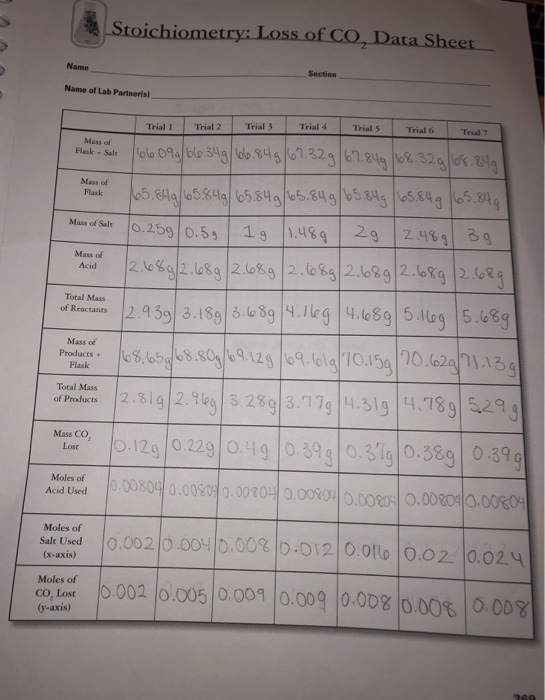 Stoichiometry: Loss of CO₂ Data Sheet
Name
Section
Name of Lab Partner(s)
Trial 1 Trial 2 Trial 3 Trial 4 Trial 5 Trial 6 Trial 7
Mass of
Flask + Salt 66.09g 66.34g 66.84g 67.32g 67.84g 68.32g 68.84g
Mass of
Flask 65.84g 65.84g 65.84g 65.84g 65.84g 65.84g 65.84g
Mass of Salt 0.25g 0.5g 1g 1.48g 2g 2.48g 3g
Mass of
Acid 2.68g 2.68g 2.68g 2.68g 2.68g 2.68g 2.68g
Total Mass
of Reactants 2.93g 3.18g 3.68g 4.16g 4.68g 5.16g 5.68g
Mass of
Products +
Flask 68.65g 68.80g 69.12g 69.61g 70.15g 70.62g 71.13g
Total Mass
of Products 2.81g 2.96g 3.28g 3.77g 4.31g 4.78g 5.29g
Mass CO₂
Lost 0.12g 0.22g 0.4g 0.39g 0.37g 0.38g 0.39g
Moles of
Acid Used 0.00804 0.00804 0.00804 0.00804 0.00804 0.00804 0.00804
Moles of
Salt Used
(x-axis) 0.002 0.004 0.008 0.012 0.016 0.02 0.024
Moles of
CO₂ Lost
(y-axis) 0.002 0.005 0.009 0.009 0.008 0.008 0.008
369